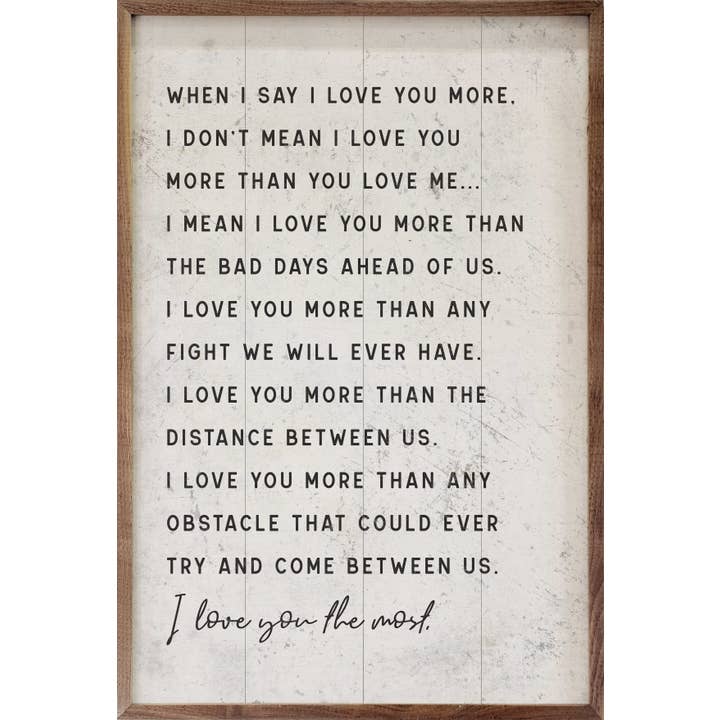 WHEN I SAY I LOVE YOU MORE,
I DON'T MEAN I LOVE YOU
MORE THAN YOU LOVE ME...
I MEAN I LOVE YOU MORE THAN
THE BAD DAYS AHEAD OF US.
I LOVE YOU MORE THAN ANY
FIGHT WE WILL EVER HAVE.
I LOVE YOU MORE THAN THE
DISTANCE BETWEEN US.
I LOVE YOU MORE THAN ANY
OBSTACLE THAT COULD EVER
TRY AND COME BETWEEN US.
I love you the most.